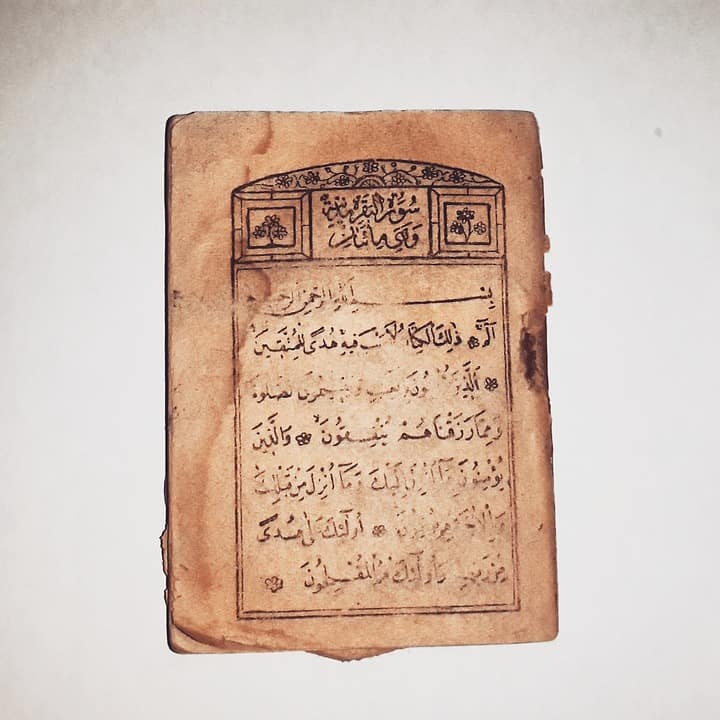 سُورَةُ الْبَقَرَةِ مَدَنِيَّةٌ
وَهِيَ مِائَتَانِ
بِسْمِ اللّٰهِ الرَّحْمٰنِ الرَّحِيمِ
الٓمٓ ۞ ذٰلِكَ الْكِتَابُ فِيهِ هُدًى لِلْمُتَّقِينَ
۞ الَّذِينَ
وَمِمَّا رَزَقْنَاهُمْ يُنْفِقُونَ ۞ وَالَّذِينَ
يُؤْمِنُونَ بِمَا أُنْزِلَ إِلَيْكَ وَمَا أُنْزِلَ مِنْ قَبْلِكَ
وَبِالْآخِرَةِ هُمْ يُوقِنُونَ ۞ أُولٰئِكَ عَلٰى هُدًى
مِنْ رَبِّهِمْ وَأُولٰئِكَ هُمُ الْمُفْلِحُونَ ۞